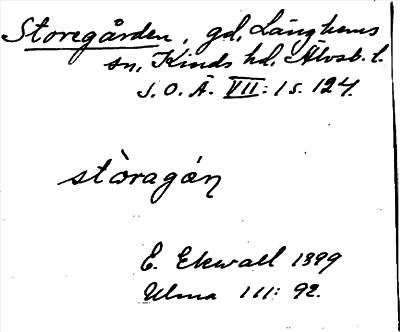 Storegården, gd, Länghems
sn, Kinds hd, Älvsb. l.
S. O. Ä. VII: 1 s. 124.
stòragán
E. Ekwall 1899
Ulma 111: 92.